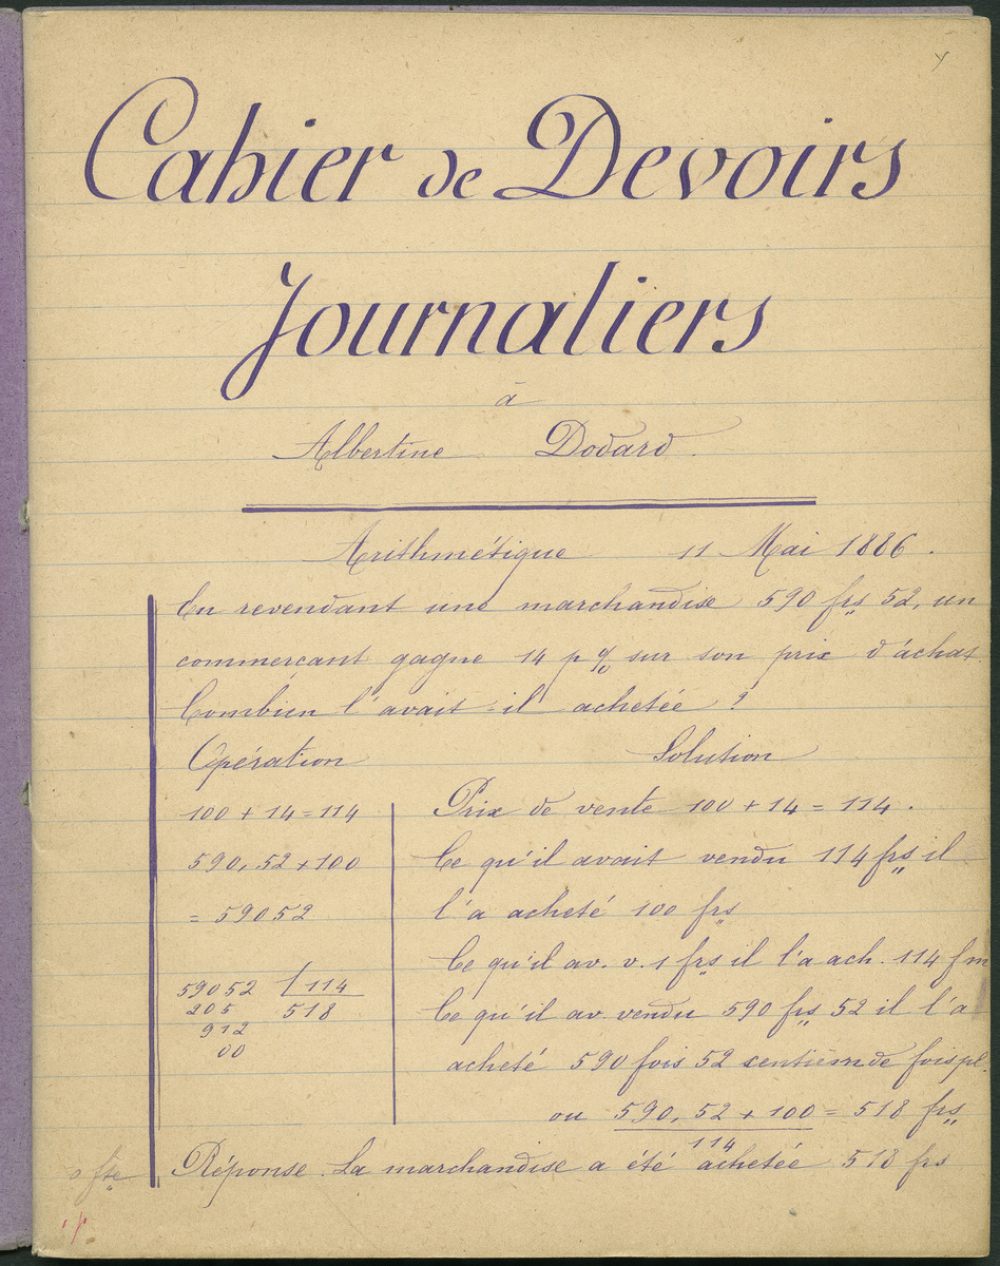 Cahier de Devoirs
Journaliers
à
Albertine Dodard.
Arithmétique 11 Mai 1886.
En revendant une marchandise 590 frs 52, un
commerçant gagne 14 p % sur son prix d'áchat
Combien l'avait-il achetée ?
Opération Solution
100 + 14 = 114 Prix de vente 100 + 14 = 114.
590, 52 + 100 Ce qu'il avait vendu 114 frs il
= 59052 l'a acheté 100 frs
Ce qu'il av. v. 1 frs il l'a ach. 114 f m
59052 114 Ce qu'il av. vendu 590 frs 52 il l'a
205 518
912
00 acheté 590 fois 52 centièm de fois pl.
ou 590, 52 + 100 = 518 frs
114
0 fte Réponse. La marchandise a été achetée 518 frs